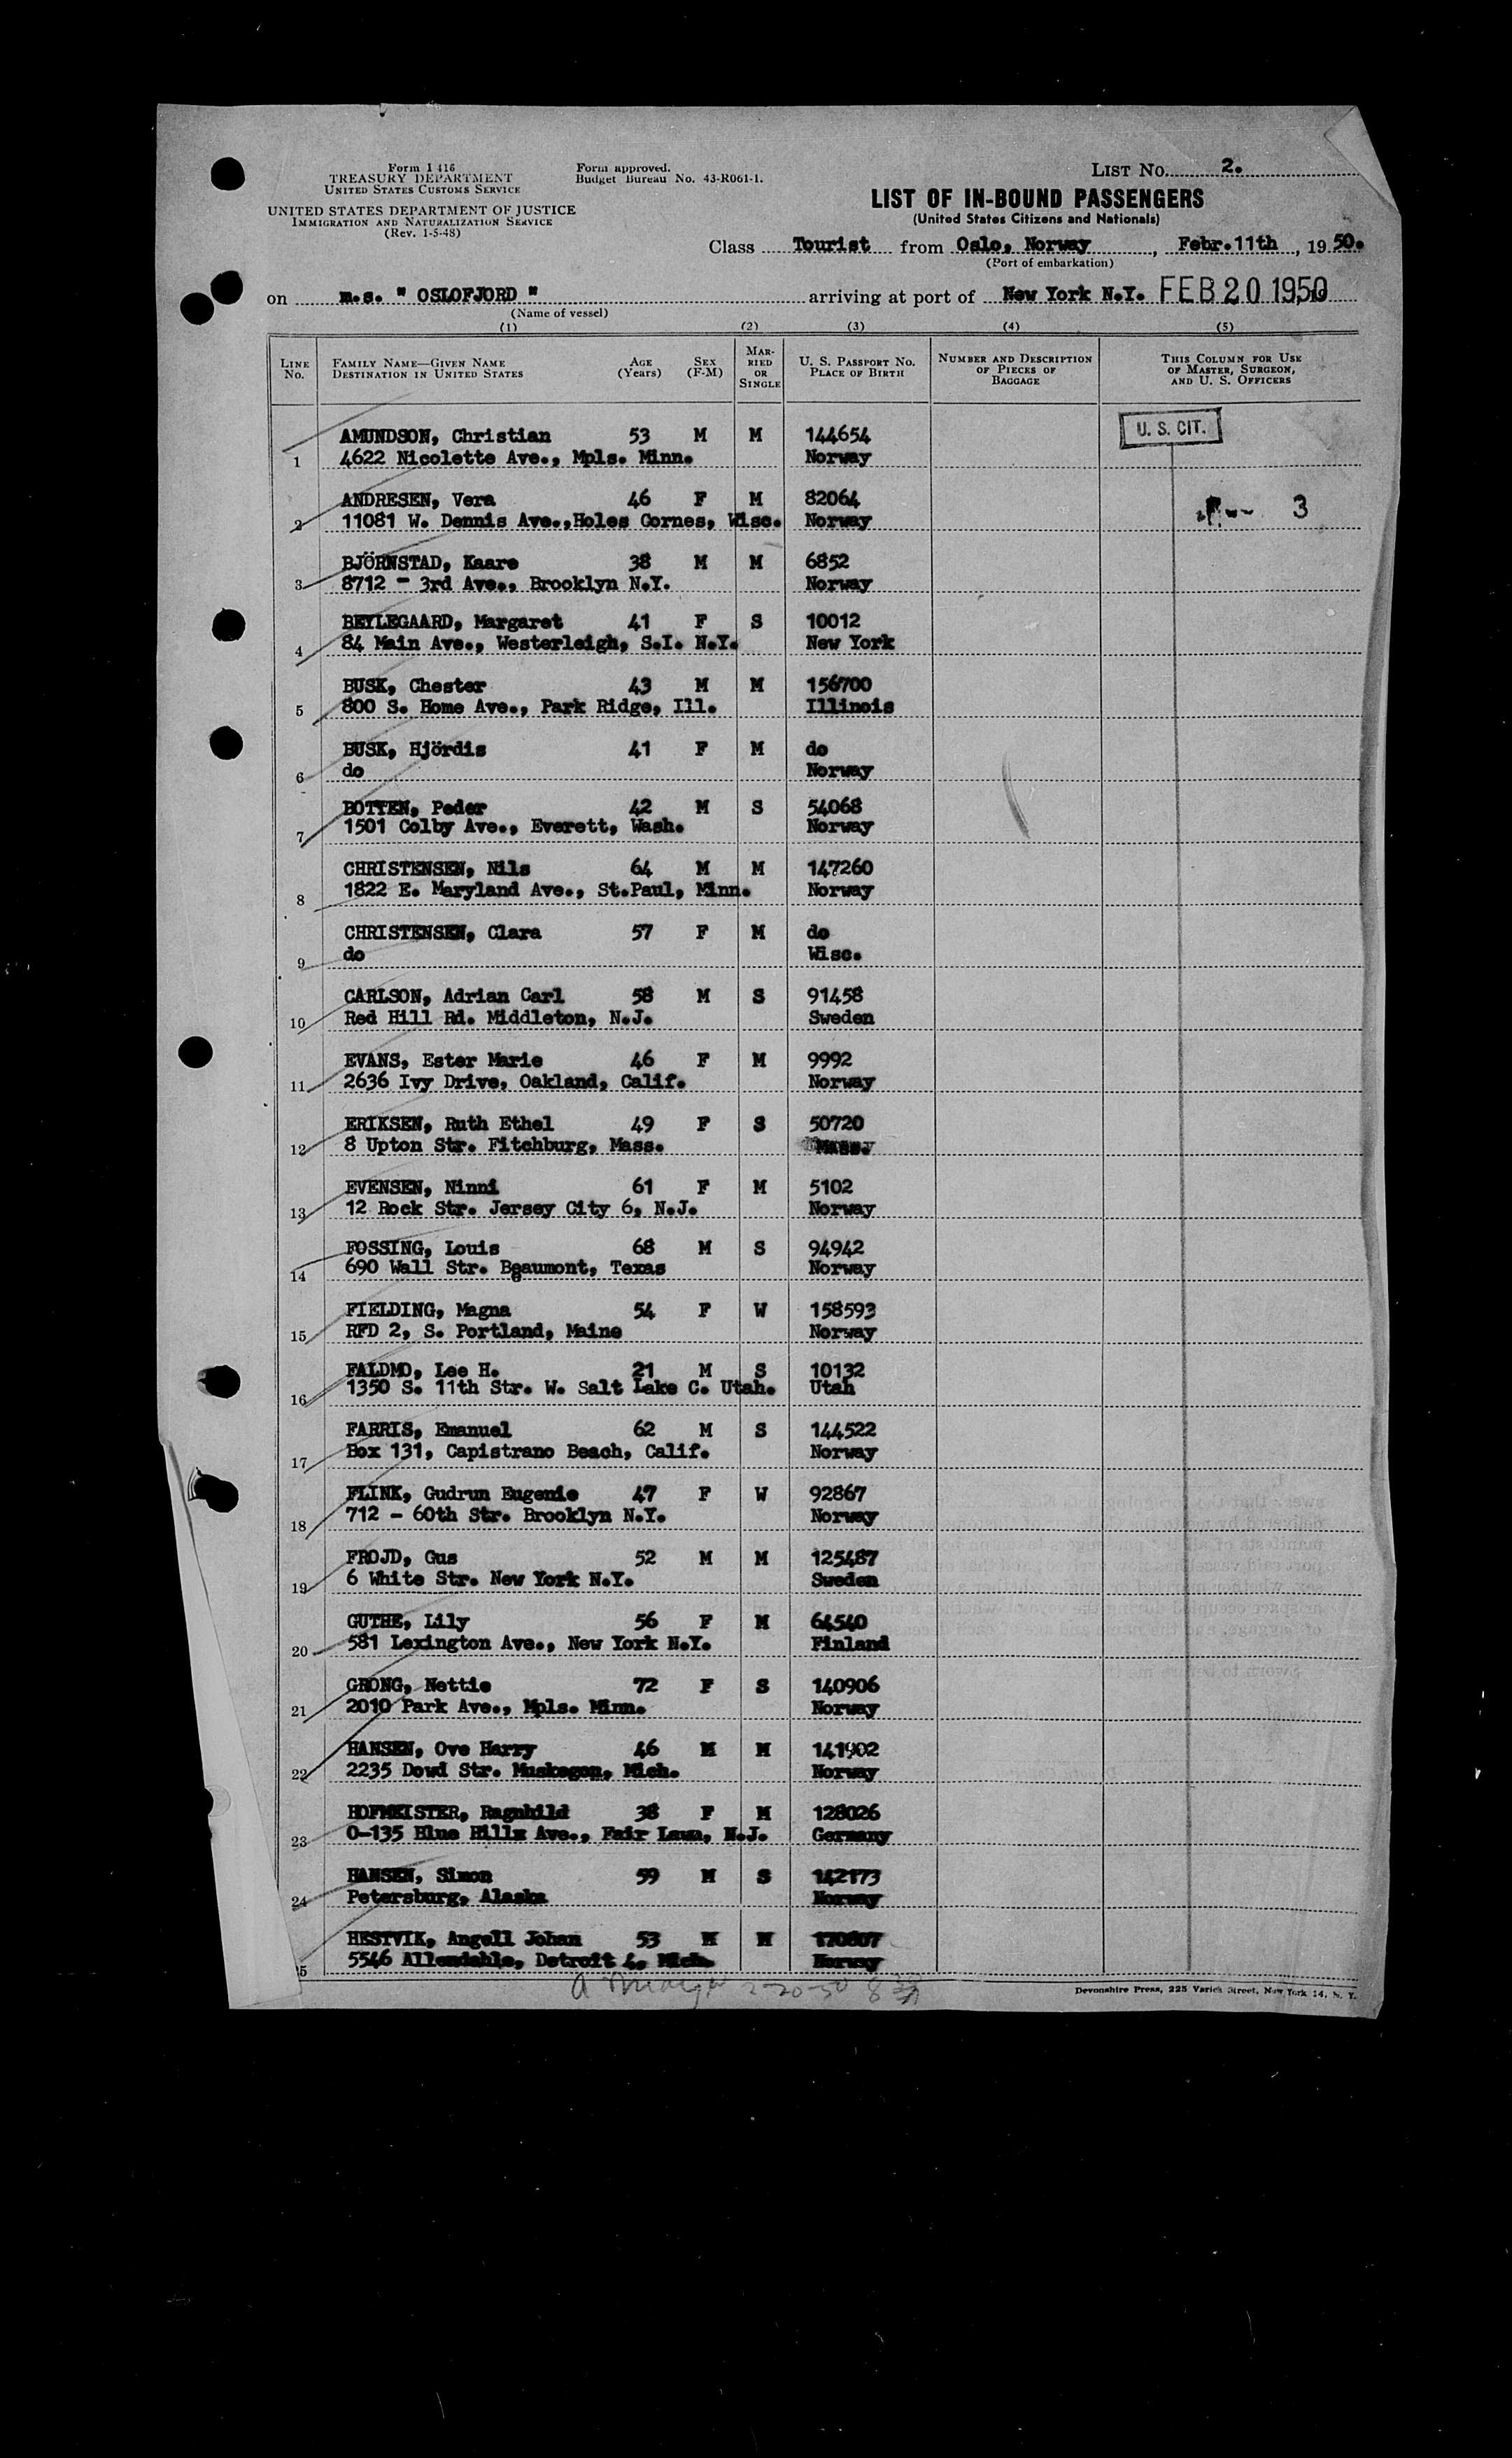 Form I 416
TREASURY DEPARTMENT
UNITED STATES CUSTOMS SERVICE
UNITED STATES DEPARTMENT OF JUSTICE
IMMIGRATION AND NATURALIZATION SERVICE
(Rev. 1-5-48)
Form approved.
Budget Bureau No. 43-R061-1.
LIST No. 2.
LIST OF IN-BOUND PASSENGERS
(United States Citizens and Nationals)
Class Tourist from Oslo, Norway, Febr.11th, 19 50.
(Port of embarkation)
on m.s. " OSLOFJORD " arriving at port of New York N.Y. FEB 20 1950
(Name of vessel)
(1) (2) (3) (4) (5)
LINE No. FAMILY NAME—GIVEN NAME DESTINATION IN UNITED STATES AGE (Years) SEX (F-M) MARRIED OR SINGLE U. S. PASSPORT No. PLACE OF BIRTH NUMBER AND DESCRIPTION OF PIECES OF BAGGAGE THIS COLUMN FOR USE OF MASTER, SURGEON, AND U. S. OFFICERS
AMUNDSON, Christian 53 M M 144654 U. S. CIT.
1 4622 Nicolette Ave., Mpls. Minn. Norway
ANDRESEN, Vera 46 F M 82064 3
2 11081 W. Dennis Ave.,Holes Cornes, Wisc. Norway
BJÖRNSTAD, Kaare 38 M M 6852
3 8712 - 3rd Ave., Brooklyn N.Y. Norway
BEYLEGAARD, Margaret 41 F S 10012
4 84 Main Ave., Westerleigh, S.I. N.Y. New York
BUSK, Chester 43 M M 156700
5 800 S. Home Ave., Park Ridge, Ill. Illinois
BUSK, Hjördis 41 F M do
6 do Norway
BOTTEN, Peder 42 M S 54068
7 1501 Colby Ave., Everett, Wash. Norway
CHRISTENSEN, Nils 64 M M 147260
8 1822 E. Maryland Ave., St.Paul, Minn. Norway
CHRISTENSEN, Clara 57 F M do
9 do Wisc.
CARLSON, Adrian Carl 58 M S 91458
10 Red Hill Rd. Middleton, N.J. Sweden
EVANS, Ester Marie 46 F M 9992
11 2636 Ivy Drive, Oakland, Calif. Norway
ERIKSEN, Ruth Ethel 49 F S 50720
12 8 Upton Str. Fitchburg, Mass. Mass.
EVENSEN, Ninni 61 F M 5102
13 12 Rock Str. Jersey City 6, N.J. Norway
FOSSING, Louis 68 M S 94942
14 690 Wall Str. Beaumont, Texas Norway
FIELDING, Magna 54 F W 158593
15 RFD 2, S. Portland, Maine Norway
FALDMO, Lee H. 21 M S 10132
16 1350 S. 11th Str. W. Salt Lake C. Utah. Utah
FARRIS, Emanuel 62 M S 144522
17 Box 131, Capistrano Beach, Calif. Norway
FLINK, Gudrun Eugenie 47 F W 92867
18 712 - 60th Str. Brooklyn N.Y. Norway
FROJD, Gus 52 M M 125487
19 6 White Str. New York N.Y. Sweden
GUTHE, Lily 56 F M 64540
20 581 Lexington Ave., New York N.Y. Finland
GRONG, Nettie 72 F S 140906
21 2010 Park Ave., Mpls. Minn. Norway
HANSEN, Ove Harry 46 M M 141902
22 2235 Dowd Str. Muskegon, Mich. Norway
HOFMEISTER, Ragnhild 38 F M 128026
23 0-135 Blue Hills Ave., Fair Lawn, N.J. Germany
HANSEN, Simon 59 M S 142173
24 Petersburg, Alaska Norway
HESTVIK, Angell Johan 53 M M 170807
5 5546 Allendahle, Detroit 4, Mich. Norway
2-20-50
Devonshire Press, 225 Varick Street, New York 14, N. Y.